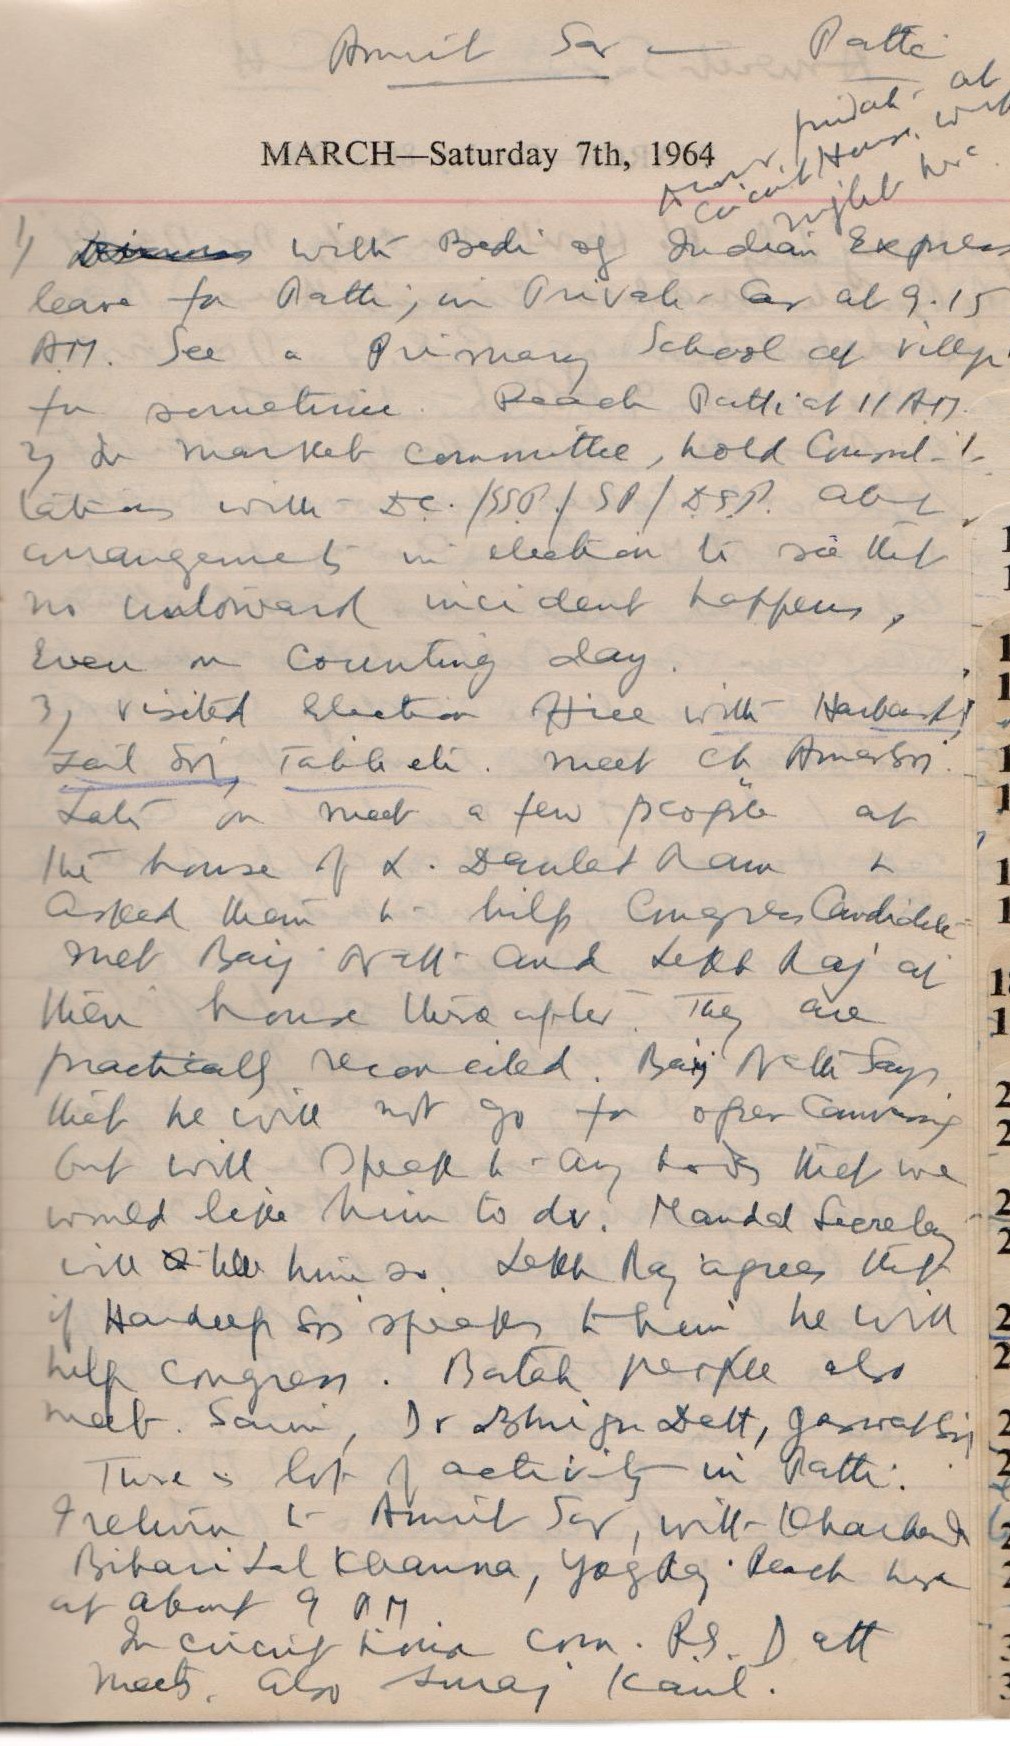 Amrit Sar — Patti
MARCH—Saturday 7th, 1964
at
Circuit House, with
night here.
1) with Bedi of Indian Express
leave for Patti, in Private Car at 9.15
AM. See a Primary School of Village
for sometime. Reach Patti at 11 AM.
2) In market committee, hold Consul-
tations with DC./SSP./SP/DSP. about
arrangements in election to see that
no untoward incident happens,
Even on Counting day.
3) Visited Election Office with
meet Ch Amar Sri.
Later on meet a few people at
the house of L. Daulat Ram &
asked them to help Congress Candidate
met Baij Nath and Lekh Raj at
their house thereafter. They are
practically reconciled. Baij Nath Says
that he will not go for open Canvassing
but will speak to any body that we
would like him to do. Mandal Secretary
will tell him so. Lekh Raj agrees that
if Hardeep Sri speaks to him he will
help Congress. Batala people also
meet. Saini, Dr Bhrigu Datt, Jaswat Sri
There is lot of activity in Patti.
I return to Amrit Sar, with
Bihari Lal Khanna, Yog Raj. Reach here
at about 9 PM.
In circuit house com. P.S. Datt
meets. Also Suraj Kaul.